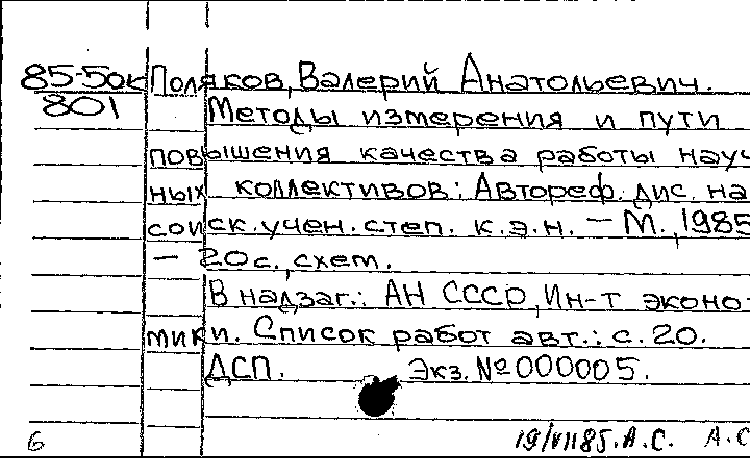 85-50к Поляков, Валерий Анатольевич.
801 Методы измерения и пути
повышения качества работы науч
ных коллективов: Автореф. дис. на
соиск. учен. степ. к.э.н. – М., 1985
– 20с., схем.
В надзаг.: АН СССР, Ин-т эконо-
мики. Список работ авт.: с. 20.
ДСП. Экз. № 000005.
6 19/VII85. А.С. А.С